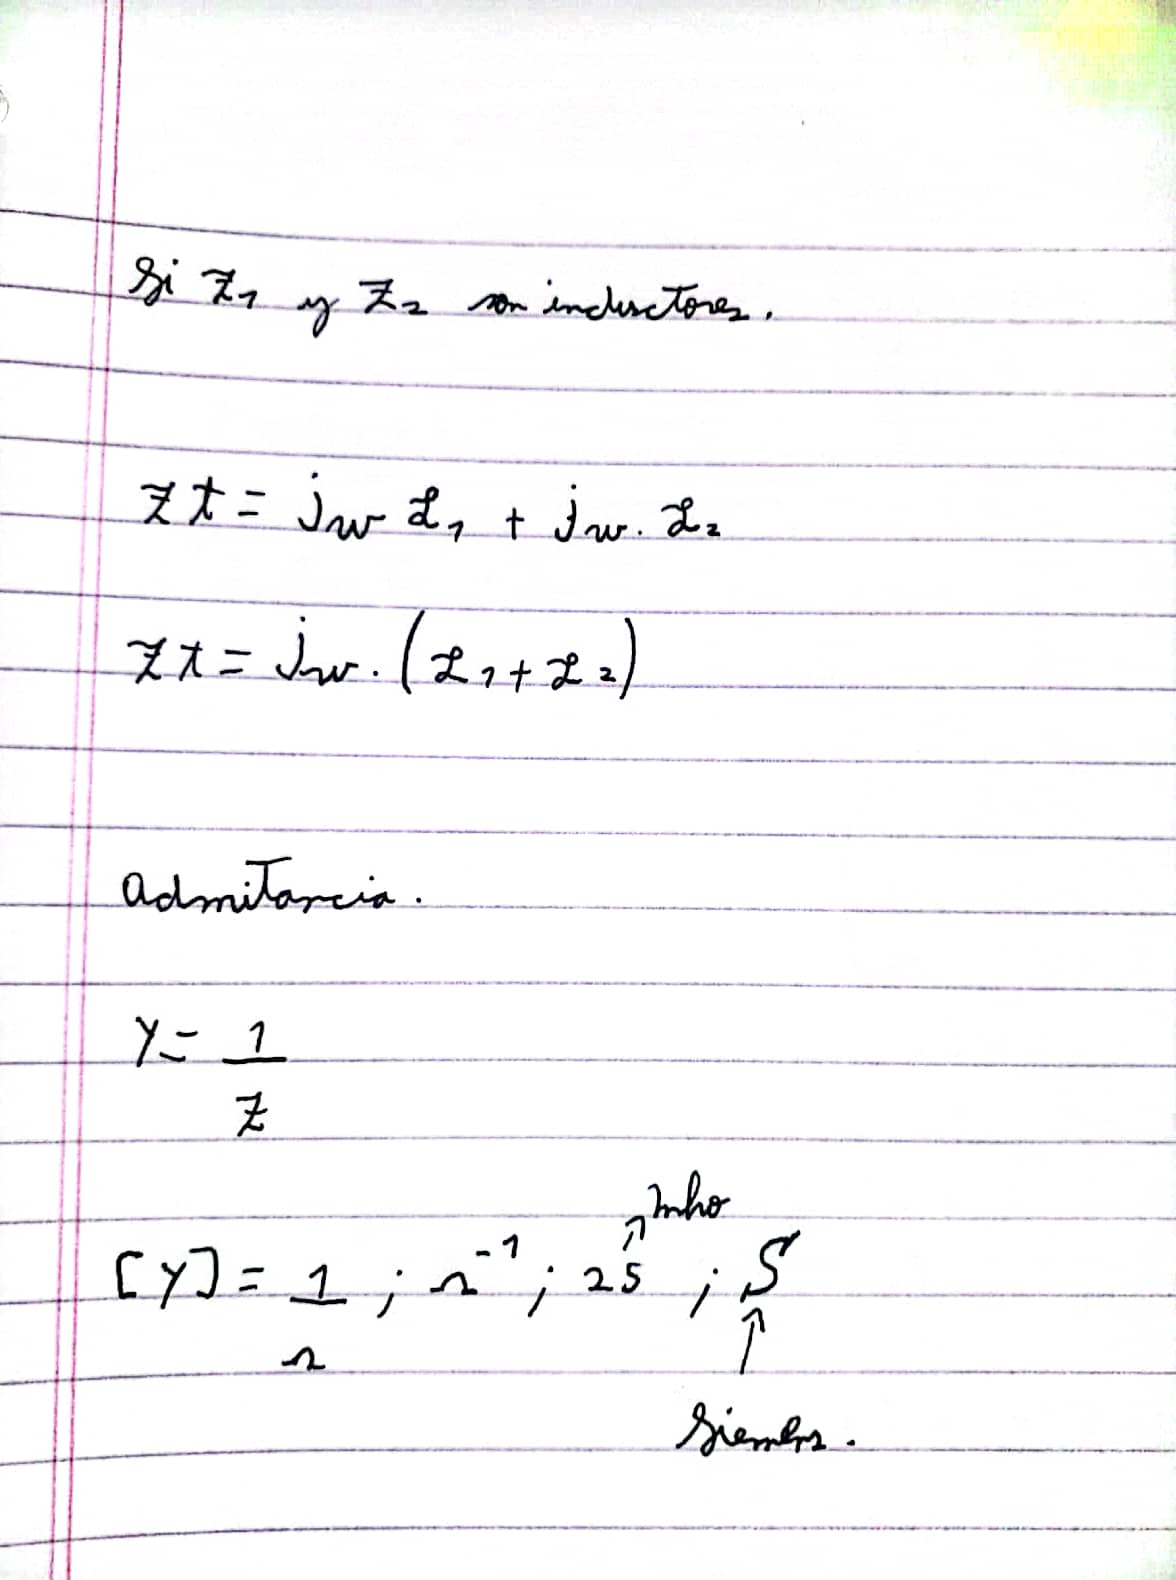 Si Z1 y Z2 son inductores.
Zt = jw L1 + jw. L2
Zt = jw. (L1 + L2)
admitancia.
Y = 1/Z
mho
[Y] = 1/Ω ; Ω^-1 ; 25 ; S
Siemens.